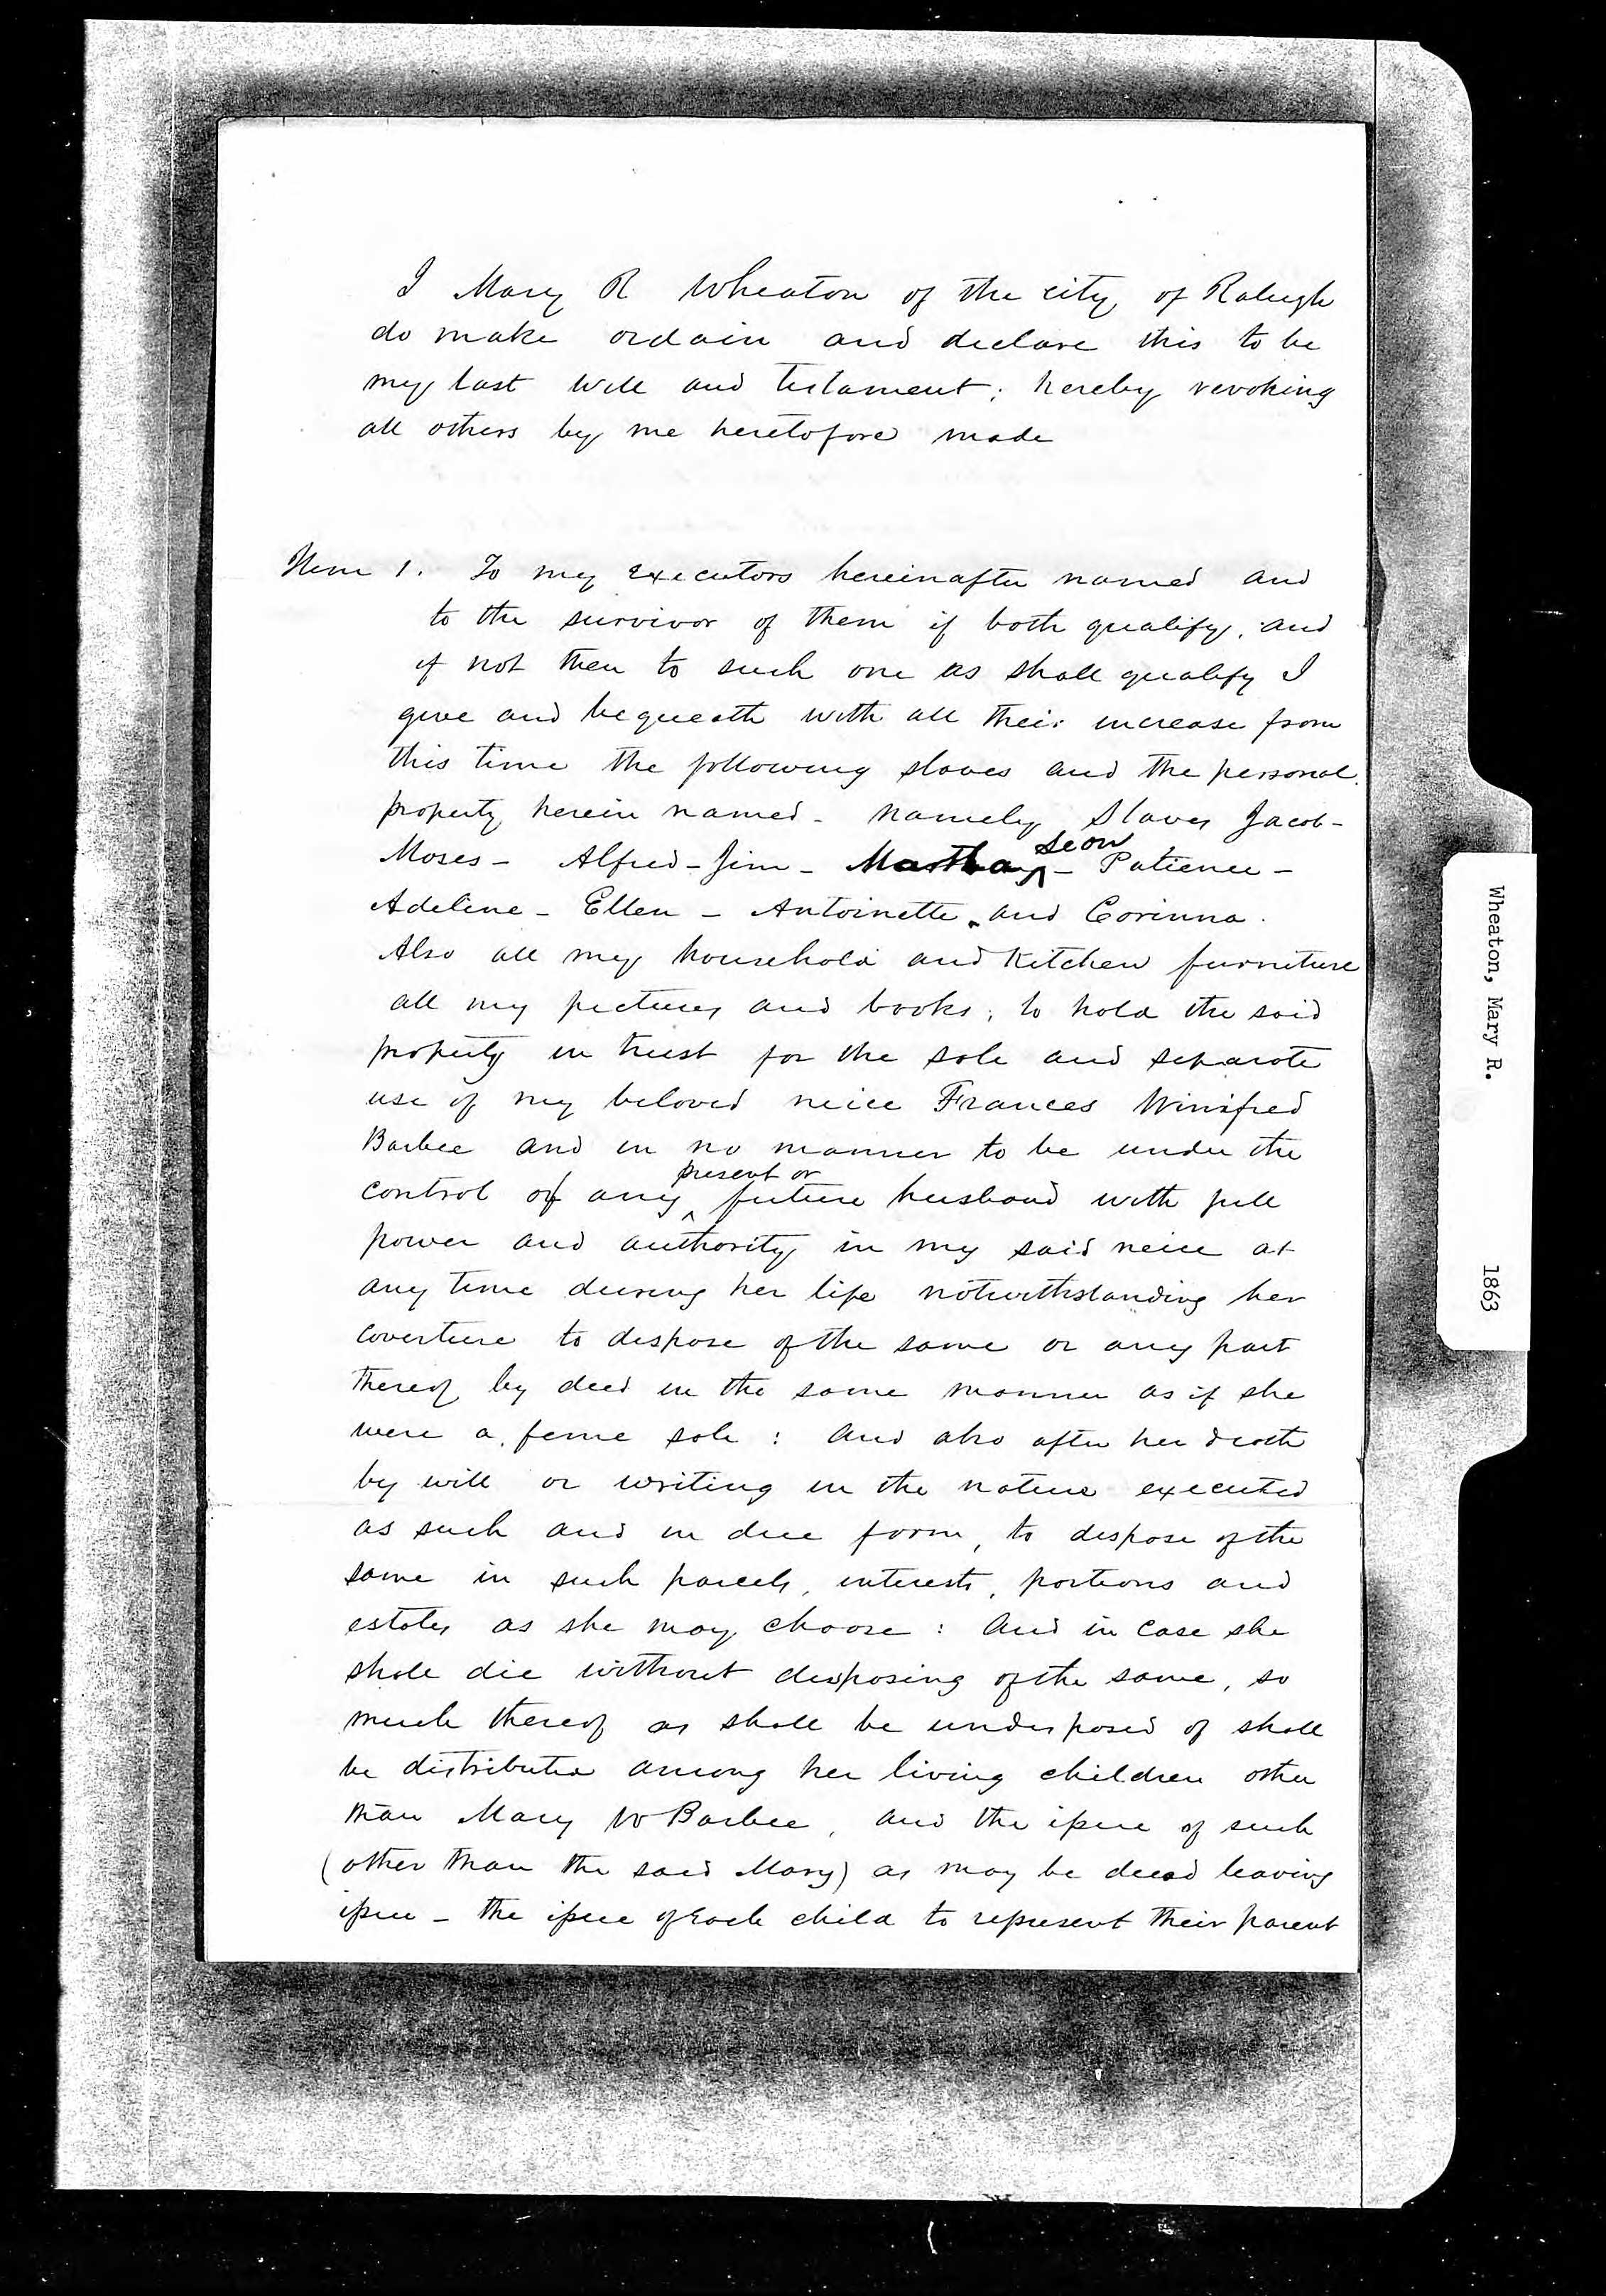 I Mary R Wheaton of the city of Raleigh
do make ordain and declare this to be
my last will and testament; hereby revoking
all others by me heretofore made
Item 1. To my Executors hereinafter named and
to the survivor of them if both qualify, and
if not then to such one as shall qualify I
give and bequeath with all their increase from
this time the following slaves and the personal
property herein named - namely Slaves Jacob -
Moses - Alfred - Jim - Martha - Patience -
Adeline - Ellen - Antoinette and Corinna.
Also all my household and Kitchen furniture
all my pictures and books; to hold the said
property in trust for the sole and separate
use of my beloved neice Frances Winifred
Barbee and in no manner to be under the
present or
control of any ^ future husband with full
power and authority in my said neice at
any time during her life notwithstanding her
coverture to dispose of the same or any part
thereof by deed in the same manner as if she
were a feme sole: And also after her death
by will or writing in the nature executed
as such and in due form, to dispose of the
same in such parcels, interests, portions and
estates as she may choose: And in case she
shall die without disposing of the same, so
much thereof as shall be undisposed of shall
be distributed among her living children other
than Mary W Barbee, and the issue of such
(other than the said Mary) as may be dead leaving
issue - the issue of each child to represent their parent
Wheaton, Mary R. 1863